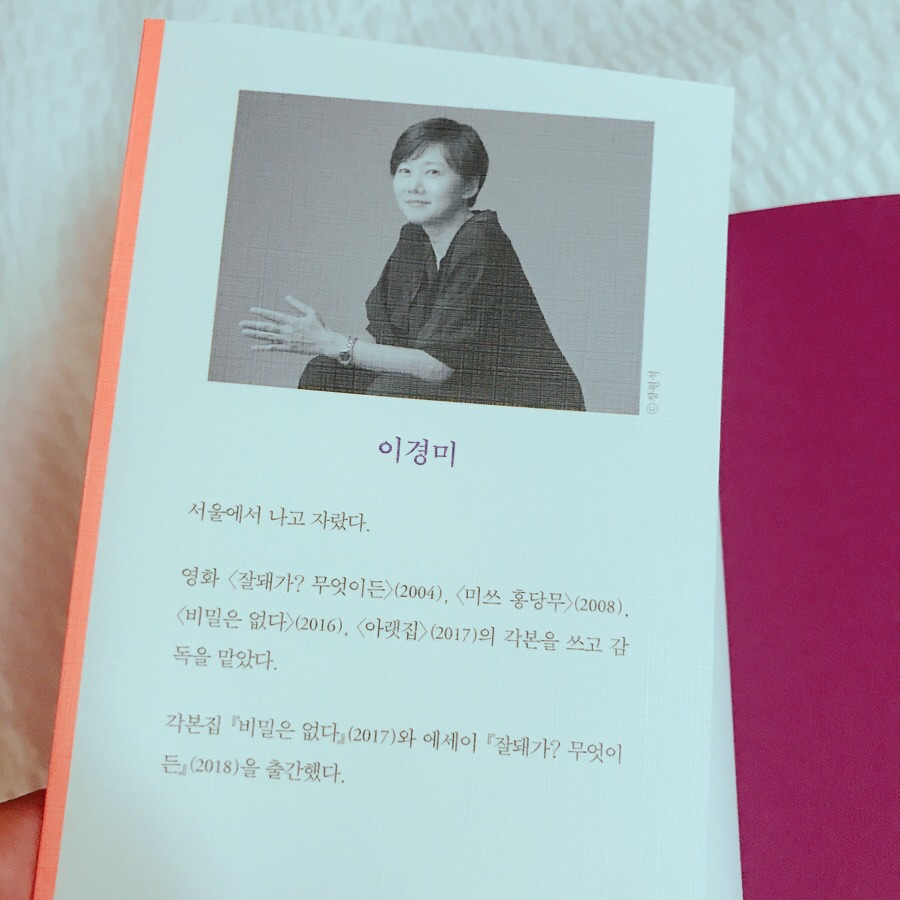 ⓒ장원석
이경미
서울에서 나고 자랐다.
영화 〈잘돼가? 무엇이든〉(2004), 〈미쓰 홍당무〉(2008),
〈비밀은 없다〉(2016), 〈아랫집〉(2017)의 각본을 쓰고 감
독을 맡았다.
각본집 『비밀은 없다』(2017)와 에세이 『잘돼가? 무엇이
든』(2018)을 출간했다.